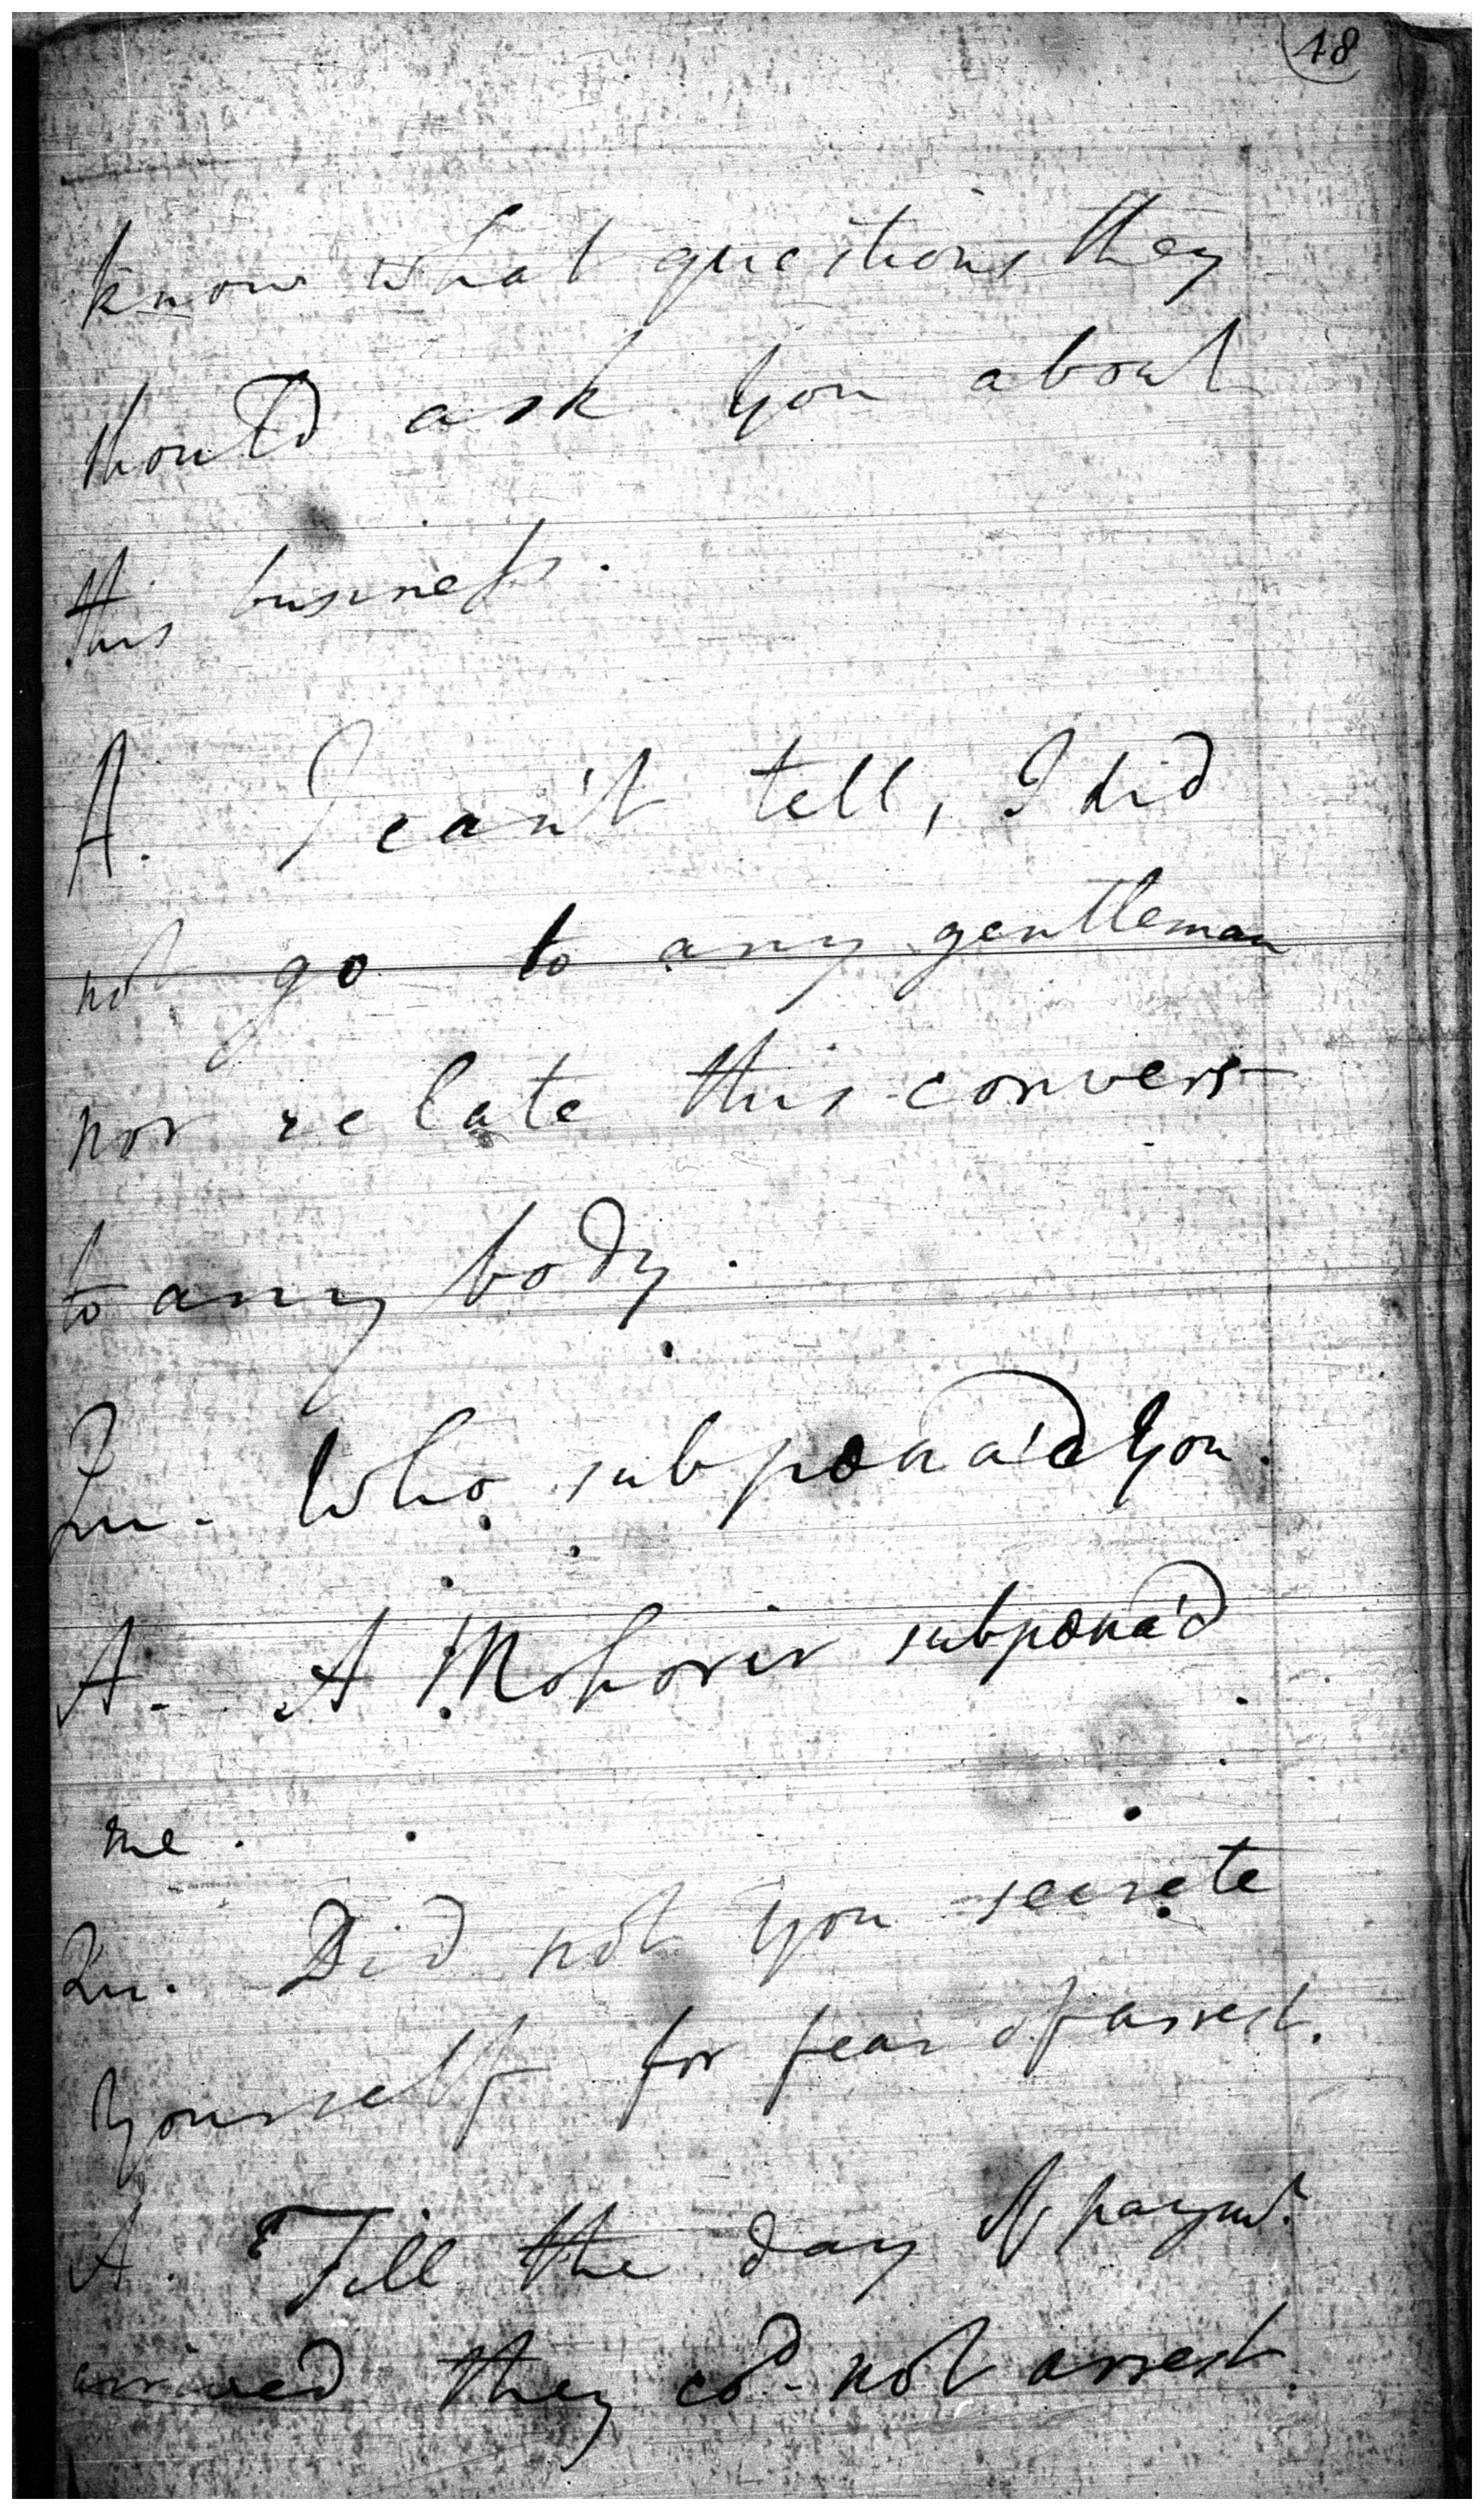 48
know what questions they
should ask you about
this business.
A. I can't tell, I did
not go to any gentleman
nor relate this convers
to any body.
Qu. Who subpona'd you.
A. A Mohorir subpona'd
me.
Qu. Did not you secrete
yourself for fear of arrest.
A. Till the day of paymt.
arrived they cd. not arrest